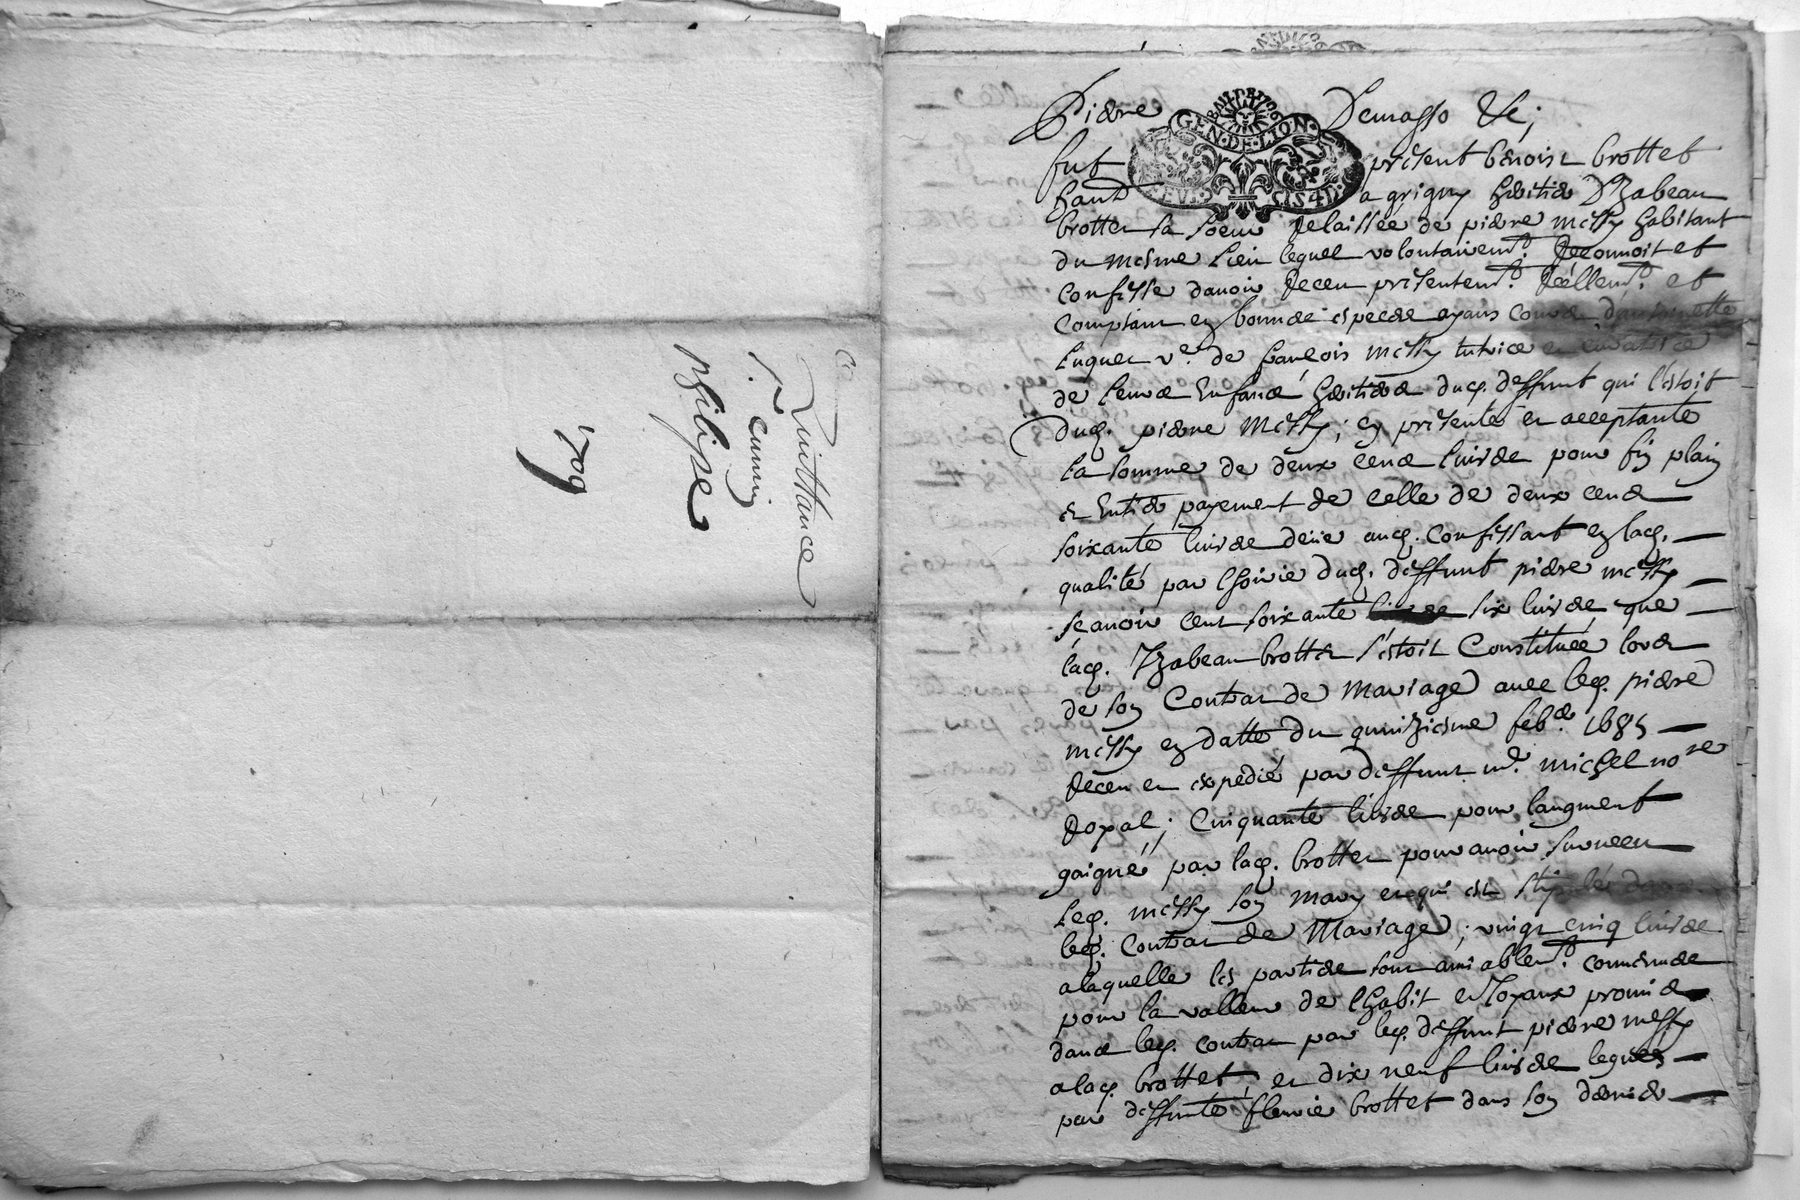 Quittance
P. cunin
philipe
1709
BAIL DE 1706
GEN·DE·LION·
Pierre Demasso &c;
fut présent benoist brottet
habt a grigny héritier D'Izabeau
brottet sa soeur delaissée de pierre messy habitant
du mesme Lieu lequel volontairemt. Reconnoit et
confesse davoir Receu presentemt. Réellemt. et
comptant en bonnes especes ayans cours d'antoinette
Luquet ve. de françois messy tutrice et curatrice
de leurs Enfans héritiers dud. deffunt qui l'Estoit
dud. pierre Messy; cy présente et acceptante
La somme de deux cens livres pour fin plain
et Entier payement de celle de deux cens
soixante livres deüe aud. Confessant en lad.
qualité par lhoirie dud. deffunt pierre messy
sçavoir cent soixante six livres que
lad. Izabeau brottet s'estoit Constituée lors
de son Contrat de Mariage avec led. pierre
messy en datte du quinziesme feb. 1685
Receu et expedié par deffunt me. michel nore
Royal; Cinquante livres pour laugment
gaigné par lad. brottet pour avoir survecu
Led. messy son mary ce qui est stipulé dans
led. Contrat de Mariage; vingt cinq livres
a laquelle les parties sont amiablemt. convenues
pour la valleur de l'habit et Joyaux promis
dans led. contrat par led. deffunt pierre messy
a lad. brottet, et dix neuf livres legués
par deffunte fleurie brottet dans son dernier